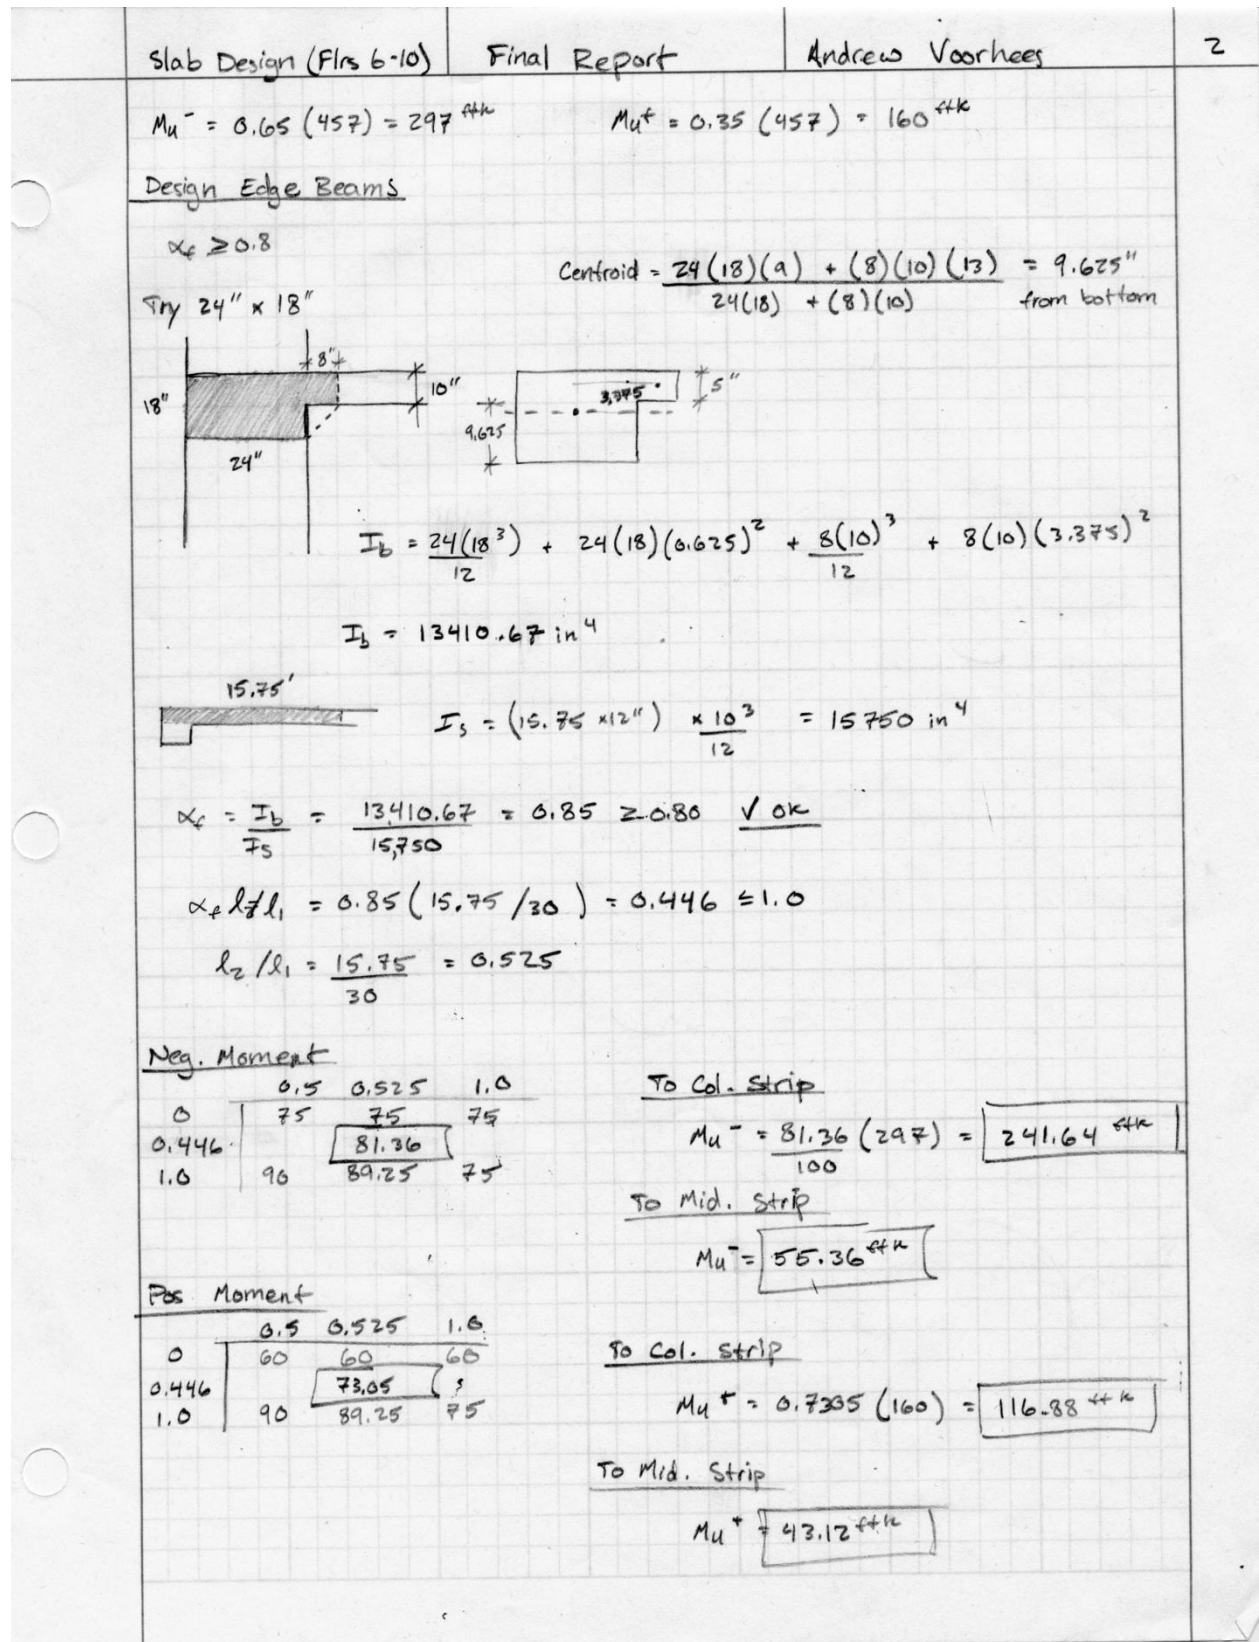 Slab Design (Flrs 6-10) Final Report Andrew Voorhees 2
Mu⁻ = 0.65 (457) = 297 ftk Mu⁺ = 0.35 (457) = 160 ftk
Design Edge Beams
αf ≥ 0.8
Centroid = 24(18)(9) + (8)(10)(13) = 9.625"
24(18) + (8)(10) from bottom
Try 24" x 18"
8"
18" 10" 3.375 5"
9.625
24"
Ib = 24(18³)/12 + 24(18)(0.625)² + 8(10)³/12 + 8(10)(3.375)²
Ib = 13410.67 in⁴
15.75'
Is = (15.75 x12") x 10³/12 = 15750 in⁴
αf = Ib/Is = 13,410.67/15,750 = 0.85 ≥ 0.80 √ OK
αf l2/l1 = 0.85 (15.75/30) = 0.446 ≤ 1.0
l2/l1 = 15.75/30 = 0.525
Neg. Moment
0.5 0.525 1.0
0 75 75 75
0.446 81.36
1.0 90 89.25 75
To Col. Strip
Mu⁻ = 81.36/100 (297) = 241.64 ftk
To Mid. Strip
Mu⁻ = 55.36 ftk
Pos Moment
0.5 0.525 1.0
0 60 60 60
0.446 73.05
1.0 90 89.25 75
To Col. Strip
Mu⁺ = 0.7305 (160) = 116.88 ftk
To Mid. Strip
Mu⁺ = 43.12 ftk